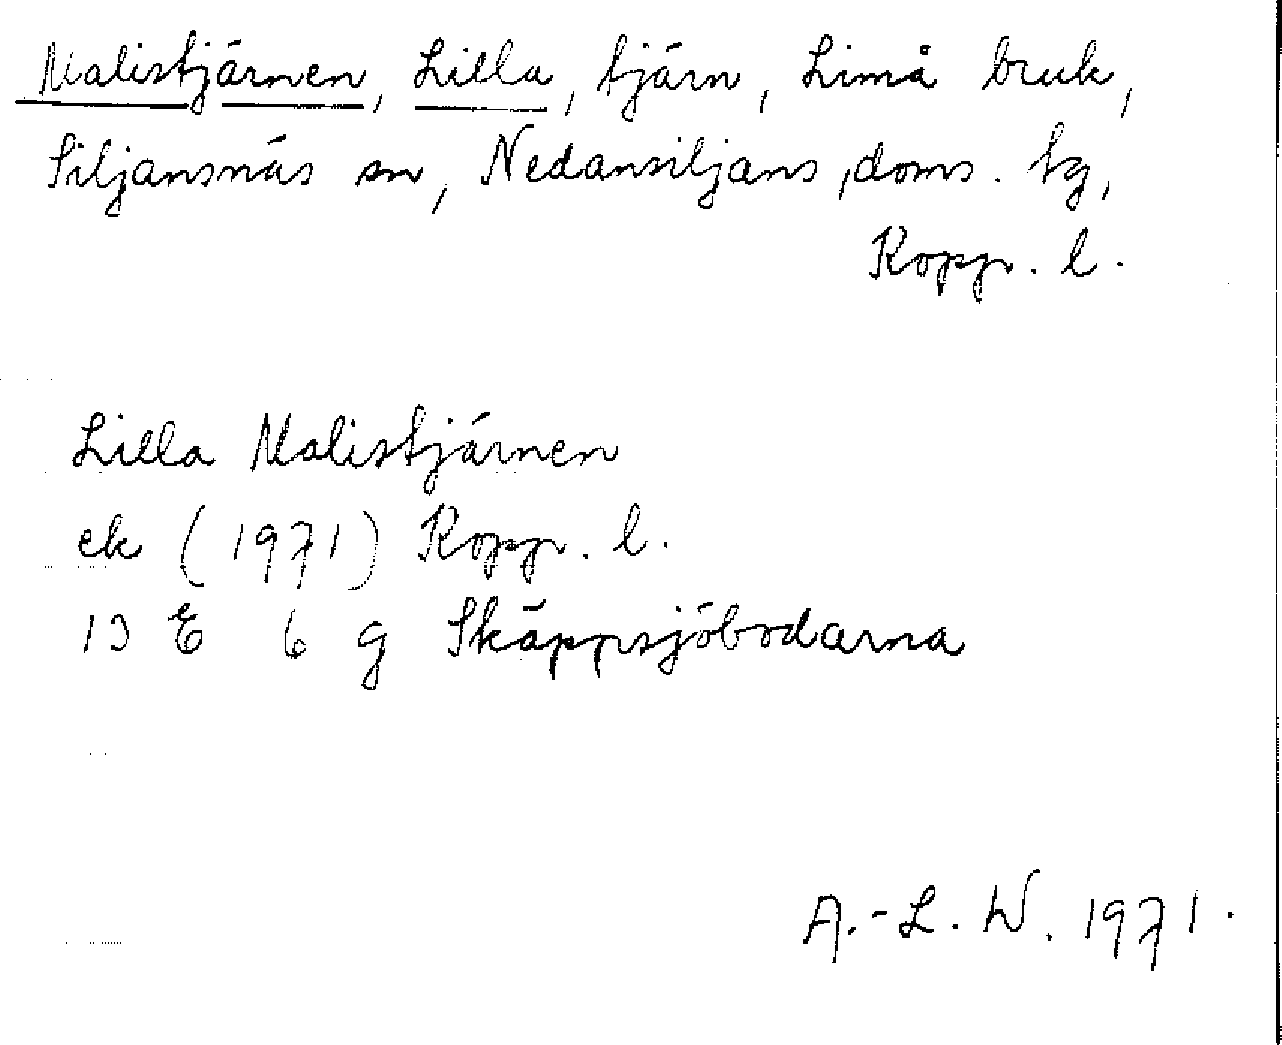 Malistjärnen, Lilla, tjärn, Limå bruk,
Siljansnäs sn, Nedansiljans, doms. tg,
Kopp. l.
Lilla Malistjärnen
ek (1971) Kopp. l.
13 E 6 g Skäppsjöbodarna
A.-L. W. 1971.